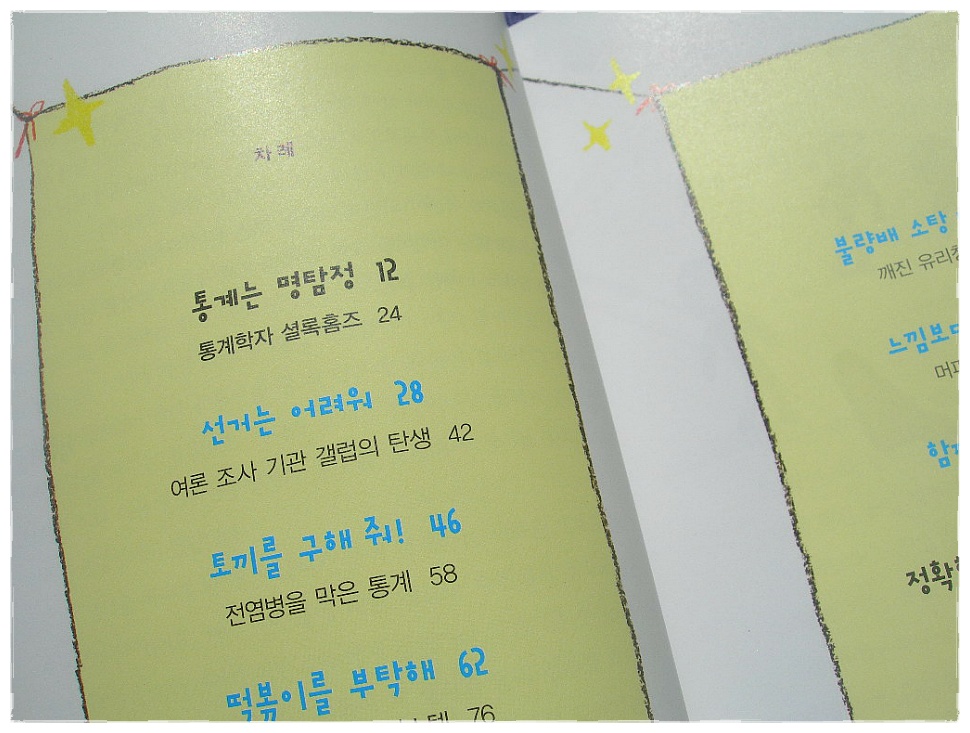 차례
통계는 명탐정 12
통계학자 셜록홈즈 24
선거는 어려워 28
여론 조사 기관 갤럽의 탄생 42
토끼를 구해 줘! 46
전염병을 막은 통계 58
떡볶이를 부탁해 62
76
불량배 소탕
깨진 유리창
느낌보다
정확한